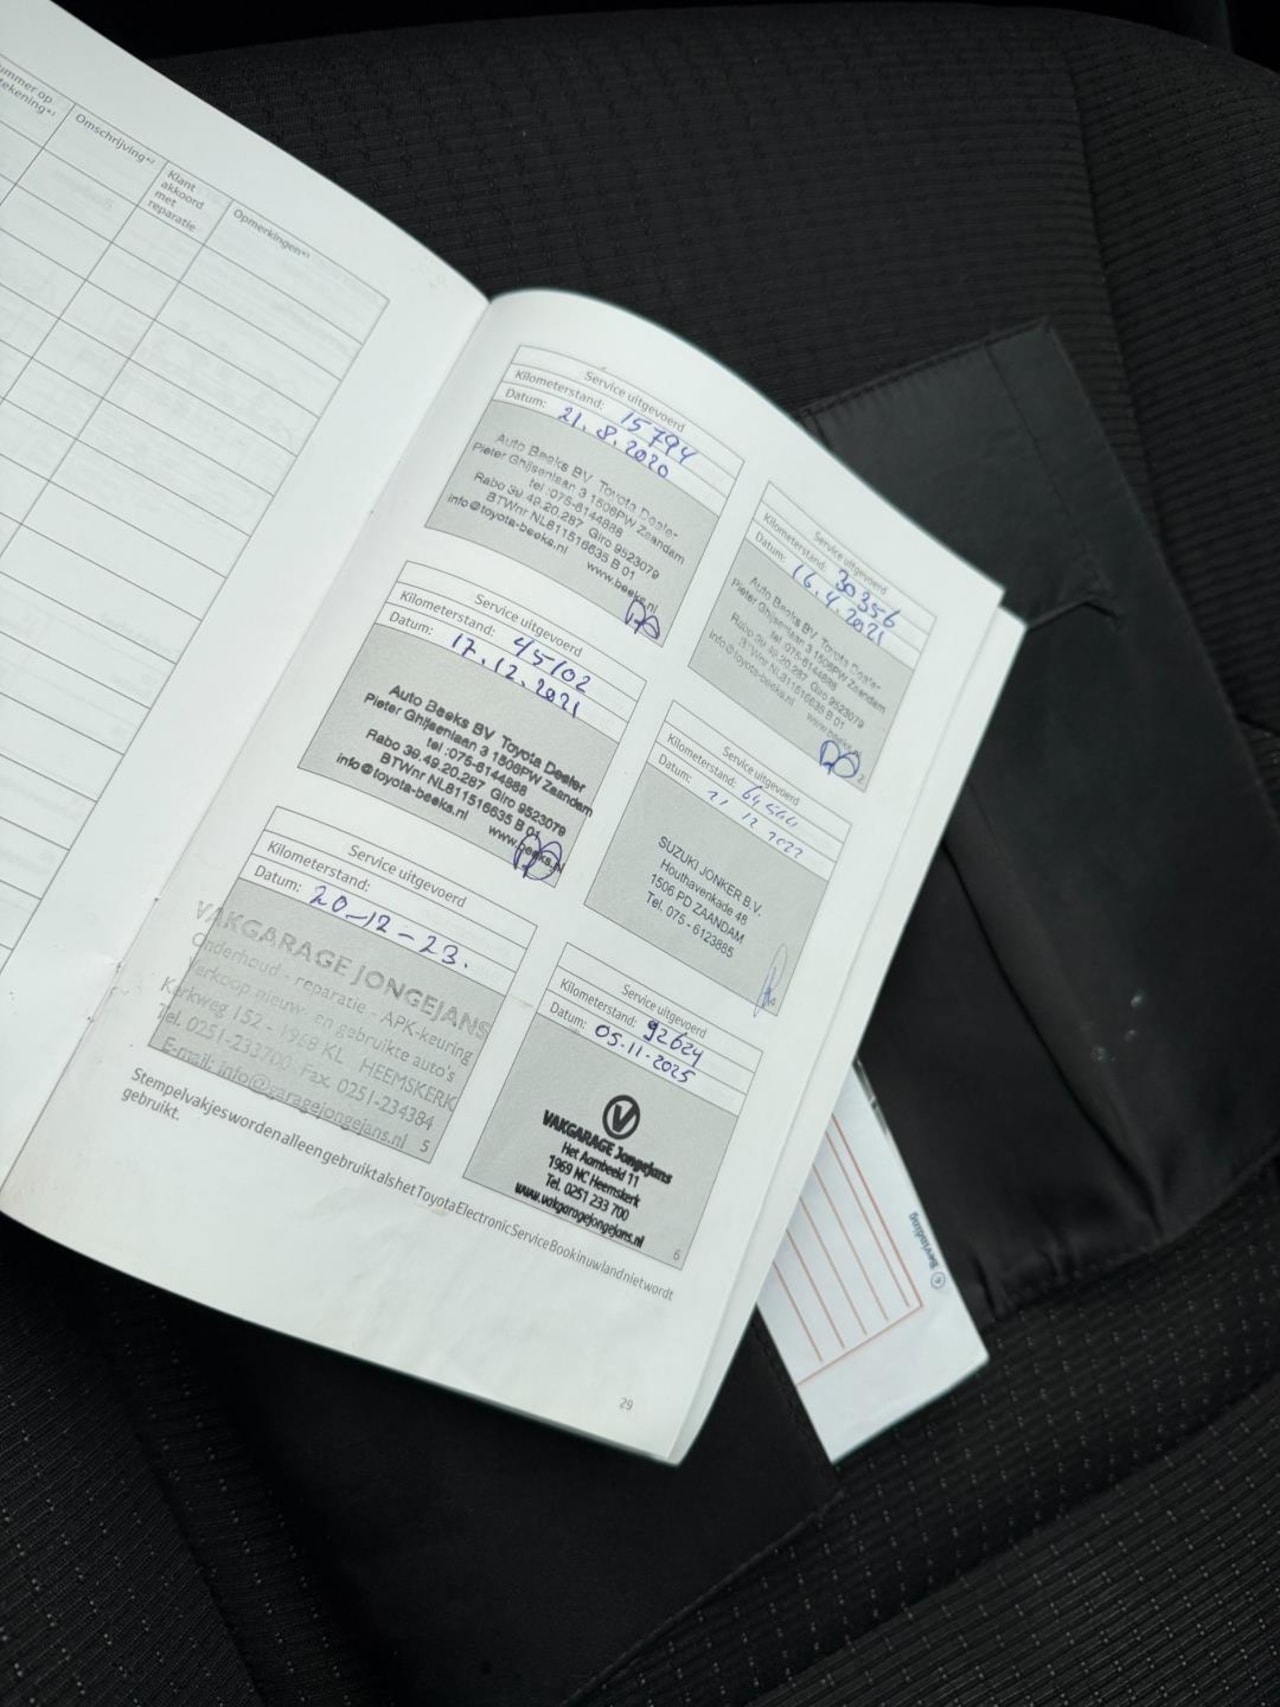 ummer op
tekening*¹
Omschrijving*²
Klant
akkoord
met
reparatie
Opmerkingen*³
Service uitgevoerd
Kilometerstand: 15794
Datum: 21.8.2020
Auto Beeks BV Toyota Dealer
Pieter Ghijsenlaan 3 1506PW Zaandam
tel :075-6144888
Rabo 39.49.20.287 Giro 9523079
BTWnr NL811516635 B 01
info@toyota-beeks.nl www.beeks.nl
Service uitgevoerd
Kilometerstand: 30356
Datum: 16.4.2021
Auto Beeks BV Toyota Dealer
Pieter Ghijsenlaan 3 1506PW Zaandam
tel :075-6144888
Rabo 39.49.20.287 Giro 9523079
BTWnr NL811516635 B 01
info@toyota-beeks.nl www.beeks.nl
2
Service uitgevoerd
Kilometerstand: 45102
Datum: 17.12.2021
Auto Beeks BV Toyota Dealer
Pieter Ghijsenlaan 3 1506PW Zaandam
tel :075-6144888
Rabo 39.49.20.287 Giro 9523079
BTWnr NL811516635 B 01
info@toyota-beeks.nl www.beeks.nl
Service uitgevoerd
Kilometerstand:
Datum: 12 2022
SUZUKI JONKER B.V.
Houthavenkade 48
1506 PD ZAANDAM
Tel. 075 - 6123885
4
Service uitgevoerd
Kilometerstand:
Datum: 20-12-23.
VAKGARAGE JONGEJANS
Onderhoud - reparatie - APK-keuring
Verkoop nieuw- en gebruikte auto's
Kerkweg 152 - 1968 KL HEEMSKERK
Tel. 0251-233700 - Fax. 0251-234384
E-mail: info@garagejongejans.nl
5
Service uitgevoerd
Kilometerstand: 92624
Datum: 05-11-2025
V
VAKGARAGE Jongejans
Het Aambeeld 11
1969 NC Heemskerk
Tel. 0251 233 700
www.vakgaragejongejans.nl
6
Stempelvakjes worden alleen gebruikt als het Toyota Electronic Service Book in uw land niet wordt
gebruikt.
29
Bevinding